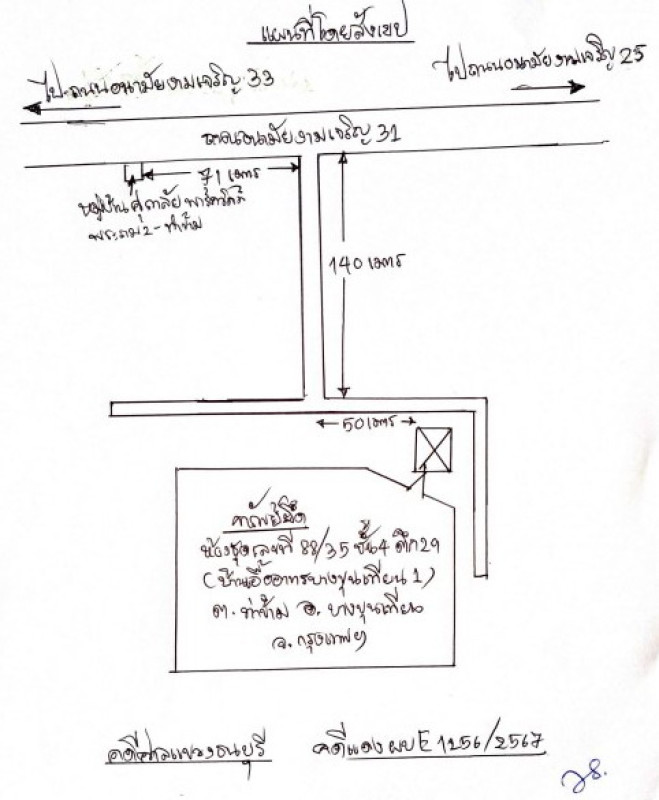 แผนที่โดยสังเขป
ไปถนนอนามัยงามเจริญ 33
ไปถนนอนามัยงามเจริญ 25
ถนนอนามัยงามเจริญ 31
71 เมตร
หมู่บ้าน ศุภาลัย พาร์ควิลล์
พระราม 2 - ท่าข้าม
140 เมตร
50 เมตร
ทรัพย์ยึด
ห้องชุดเลขที่ 88/35 ชั้น 4 ตึก 29
(บ้านเอื้ออาทรบางขุนเทียน 1)
ต. ท่าข้าม อ. บางขุนเทียน
จ. กรุงเทพฯ
คดีศาลแขวงธนบุรี คดีแดง ผบE 1256/2567